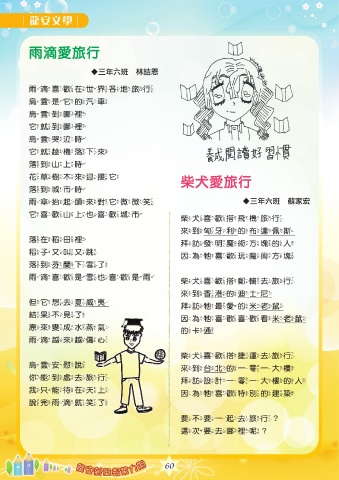 龍安文學
雨滴愛旅行
◆三年六班　林喆恩
雨滴喜歡在世界各地旅行
烏雲是它的汽車
烏雲到哪裡
它就到哪裡
烏雲哭泣時
它就趁機落下來
落到山上時
花草樹木來迎接它
落到城市時
雨傘抬起頭來對它微微笑
它喜歡山上也喜歡城市
落在稻田裡
稻子又叫又跳
落到芬蘭下雪了
雨滴喜歡是雪也喜歡是雨
但它想去夏威夷
結果不見了
原來變成水蒸氣
雨滴越來越傷心
烏雲安慰說
你能到處去旅行
我只能待在天上
說完雨滴就笑了
養成閱讀好習慣
柴犬愛旅行
◆三年六班　蘇家宏
柴犬喜歡搭飛機旅行
來到匈牙利的布達佩斯
拜訪發明魔術方塊的人
因為牠喜歡玩魔術方塊
柴犬喜歡搭郵輪去旅行
來到香港的迪士尼
拜訪牠最愛的米老鼠
因為牠喜歡喜歡看米老鼠
的卡通
柴犬喜歡搭捷運去旅行
來到台北的一零一大樓
拜訪設計一零一大樓的人
因為牠喜歡特別的建築
要不要一起去旅行？
這次要去哪裡呢？
60